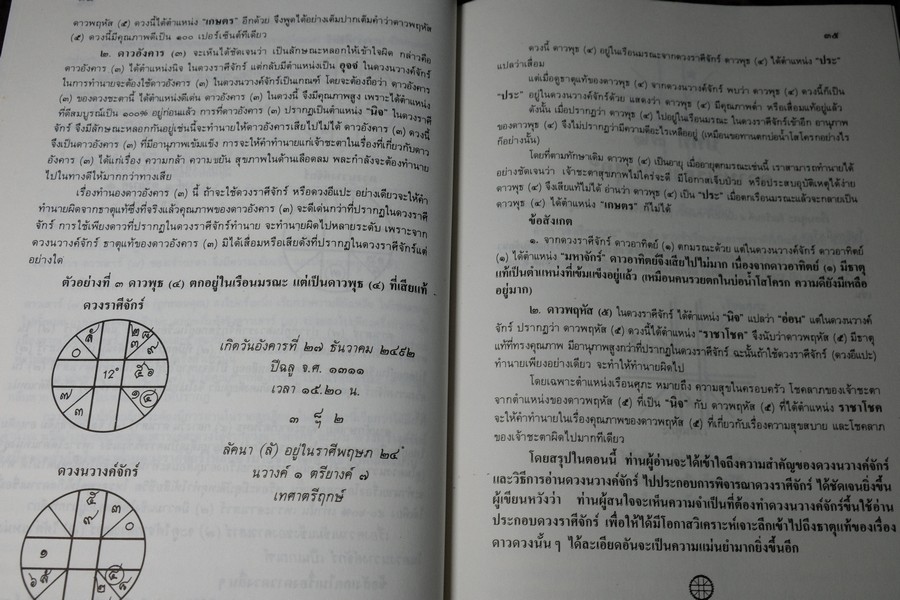 ดาวพฤหัส (๕) ดวงนี้ได้ตำแหน่ง "เกษตร" อีกด้วย จึงพูดได้อย่างเต็มปากเต็มคำว่าดาวพฤหัส
(๕) ดวงนี้มีคุณภาพดีเป็น ๑๐๐ เปอร์เซ็นต์ทีเดียว
๒. ดาวอังคาร (๓) จะเห็นได้ชัดเจนว่า เป็นลักษณะหลอกให้เข้าใจผิด กล่าวคือ
ดาวอังคาร (๓) ได้ตำแหน่งนิจ ในดวงราศีจักร์ แต่กลับมีตำแหน่งเป็น อุจจ์ ในดวงนวางค์จักร์
ในการทำนายจะต้องใช้ดาวอังคาร (๓) ในดวงนวางค์จักร์เป็นเกณฑ์ โดยจะต้องถือว่า ดาวอังคาร
(๓) ของดวงชะตานี้ ได้ตำแหน่งดีเด่น ดาวอังคาร (๓) ในดวงนี้ จึงมีคุณภาพสูง เพราะได้ตำแหน่ง
ที่ดีสมบูรณ์เป็น ๑๐๐% อยู่ก่อนแล้ว การที่ดาวอังคาร (๓) ปรากฏเป็นตำแหน่ง "นิจ" ในดวงราศี
จักร์ จึงมีลักษณะหลอกกันอยู่เช่นนี้จะทำนายให้ดาวอังคารเสียไปไม่ได้ ดาวอังคาร (๓) ดวงนี้
จึงเป็นดาวอังคาร (๓) ที่มีอานุภาพเข้มแข็ง การจะให้คำทำนายแก่เจ้าชะตาในเรื่องที่เกี่ยวกับดาว
อังคาร (๓) ได้แก่เรื่อง ความกล้า ความขยัน สุขภาพในด้านเลือดลม พละกำลังจะต้องทำนาย
ไปในทางดีให้มากกว่าทางเสีย
เรื่องทำนองดาวอังคาร (๓) นี้ ถ้าจะใช้ดวงราศีจักร์ หรือดวงอีแปะ อย่างเดียวจะให้คำ
ทำนายผิดจากธาตุแท้ซึ่งที่จริงแล้วคุณภาพของดาวอังคาร (๓) จะดีเด่นกว่าที่ปรากฏในดวงราศี
จักร์ การใช้เพียงดาวที่ปรากฏในดวงราศีจักร์ทำนาย จะทำนายผิดไปหลายระดับ เพราะจาก
ดวงนวางค์จักร์ ธาตุแท้ของดาวอังคาร (๓) มิได้เสื่อมหรือเสียดังที่ปรากฏในดวงราศีจักร์แต่
อย่างใด
ตัวอย่างที่ ๓ ดาวพุธ (๔) ตกอยู่ในเรือนมรณะ แต่เป็นดาวพุธ (๔) ที่เสียแท้
ดวงราศีจักร์
12°
เกิดวันอังคารที่ ๒๗ ธันวาคม ๒๔๙๒
ปีฉลู จ.ศ. ๑๓๑๑
เวลา ๑๕.๒๐ น.
ลัคนา (ลั) อยู่ในราศีพฤษภ ๒๔°
นวางค์ ๑ ตรียางค์ ๗
เทศาตรีฤกษ์
ดวงนวางค์จักร์
๓๕
ดวงนี้ ดาวพุธ (๔) อยู่ในเรือนมรณะจากดวงราศีจักร์ ดาวพุธ (๔) ได้ตำแหน่ง "ประ"
แปลว่าเสื่อม
แต่เมื่อดูธาตุแท้ของดาวพุธ (๔) จากดวงนวางค์จักร์ พบว่า ดาวพุธ (๔) ดวงนี้ก็เป็น
"ประ" อยู่ในดวงนวางค์จักร์ด้วย แสดงว่า ดาวพุธ (๔) มีคุณภาพต่ำ หรือเสื่อมแท้อยู่แล้ว
ดังนั้น เมื่อปรากฏว่า ดาวพุธ (๔) ไปอยู่ในเรือนมรณะ ในดวงราศีจักร์เข้าอีก อานุภาพ
ของดาวพุธ (๔) จึงไม่ปรากฏว่ามีความดีอะไรเหลืออยู่ (เหมือนขอทานตกบ่อน้ำโสโครกอย่างไร
ก็อย่างนั้น)
โดยที่ตามทักษาเดิม ดาวพุธ (๔) เป็นอายุ เมื่ออายุตกมรณะเช่นนี้ เราสามารถทำนายได้
อย่างชัดเจนว่า เจ้าชะตาสุขภาพไม่ใคร่จะดี มีโอกาสเจ็บป่วย หรือประสบอุบัติเหตุได้ง่าย
ดาวพุธ (๔) จึงเสียแท้ไม่ได้ อ่านว่า ดาวพุธ (๔) เป็น "ประ" เมื่อตกเรือนมรณะแล้วจะกลายเป็น
ดาวพุธ (๔) ได้ตำแหน่ง "เกษตร" ก็ไม่ได้
ข้อสังเกต
๑. จากดวงราศีจักร์ ดาวอาทิตย์ (๑) ตกมรณะด้วย แต่ในดวงนวางค์จักร์ ดาวอาทิตย์
(๑) ได้ตำแหน่ง "มหาจักร์" ดาวอาทิตย์จึงเสียไปไม่มาก เนื่องจากดาวอาทิตย์ (๑) มีธาตุ
แท้เป็นตำแหน่งที่เข้มแข็งอยู่แล้ว (เหมือนคนรวยตกในบ่อน้ำโสโครก ความดียังมีเหลือ
อยู่มาก)
๒. ดาวพฤหัส (๕) ในดวงราศีจักร์ ได้ตำแหน่ง "นิจ" แปลว่า "อ่อน" แต่ในดวงนวางค์
จักร์ ปรากฏว่า ดาวพฤหัส (๕) ดวงนี้ได้ตำแหน่ง "ราชาโชค" จึงนับว่าดาวพฤหัส (๕) มีธาตุ
แท้ที่ทรงคุณภาพ มีอานุภาพสูงกว่าที่ปรากฏในดวงราศีจักร์ ฉะนั้นถ้าใช้ดวงราศีจักร์ (ดวงอีแปะ)
ทำนายเพียงอย่างเดียว จะทำให้ทำนายผิดไป
โดยเฉพาะตำแหน่งเรือนศุภะ หมายถึง ความสุขในครอบครัว โชคลาภของเจ้าชะตา
จากตำแหน่งของดาวพฤหัส (๕) ที่เป็น "นิจ" กับ ดาวพฤหัส (๕) ที่ได้ตำแหน่ง ราชาโชค
จะให้คำทำนายในเรื่องคุณภาพของดาวพฤหัส (๕) ที่เกี่ยวกับเรื่องความสุขสบาย และโชคลาภ
ของเจ้าชะตาผิดไปมากทีเดียว
โดยสรุปในตอนนี้ ท่านผู้อ่านจะได้เข้าใจถึงความสำคัญของดวงนวางค์จักร์
และวิธีการอ่านดวงนวางค์จักร์ ไปประกอบการพิจารณาดวงราศีจักร์ ได้ชัดเจนยิ่งขึ้น
ผู้เขียนหวังว่า ท่านผู้สนใจจะเห็นความจำเป็นที่ต้องทำดวงนวางค์จักร์ขึ้นใช้อ่าน
ประกอบดวงราศีจักร์ เพื่อให้ได้มีโอกาสวิเคราะห์เจาะลึกเข้าไปถึงธาตุแท้ของเรื่อง
ดาวดวงนั้น ๆ ได้ละเอียดอันจะเป็นความแม่นยำมากยิ่งขึ้นอีก